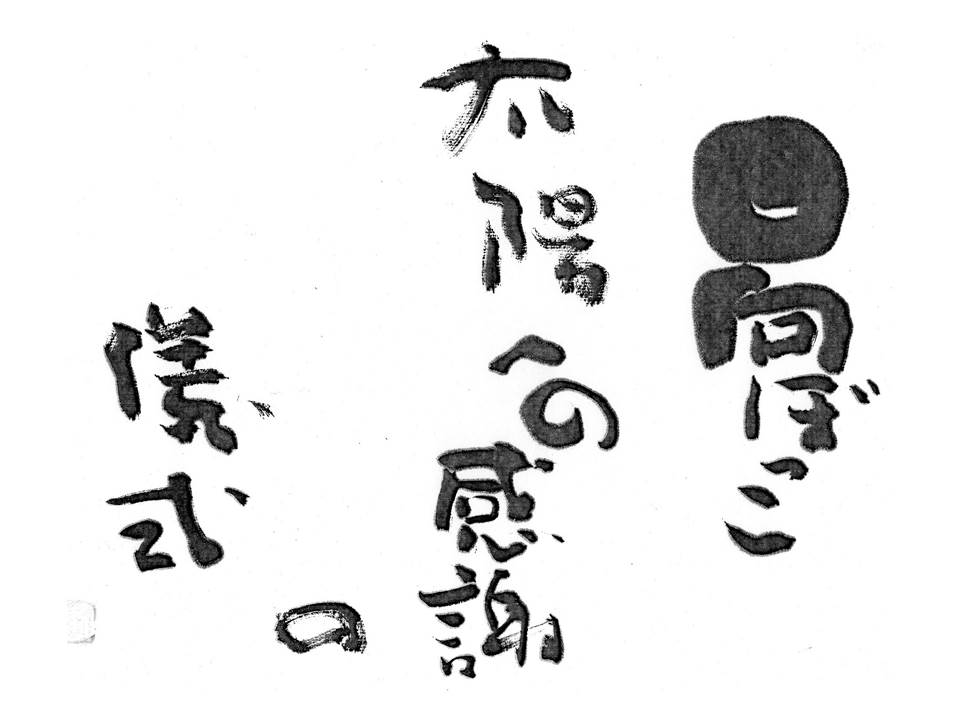 日向ぼっこ
太陽への感謝
の
儀式